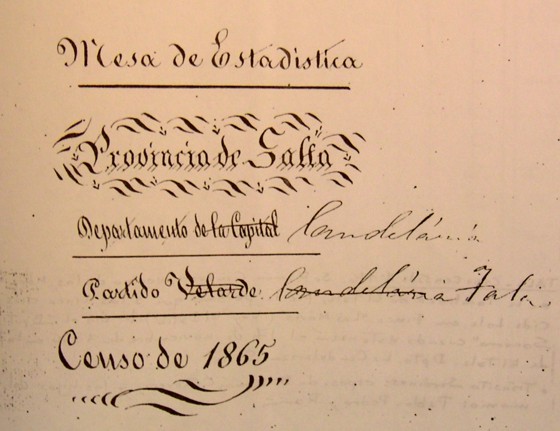 Mesa de Estadistica
Provincia de Salta
Departamento de la Capital Candelária
Partido Velarde Candelária Tala
Censo de 1865